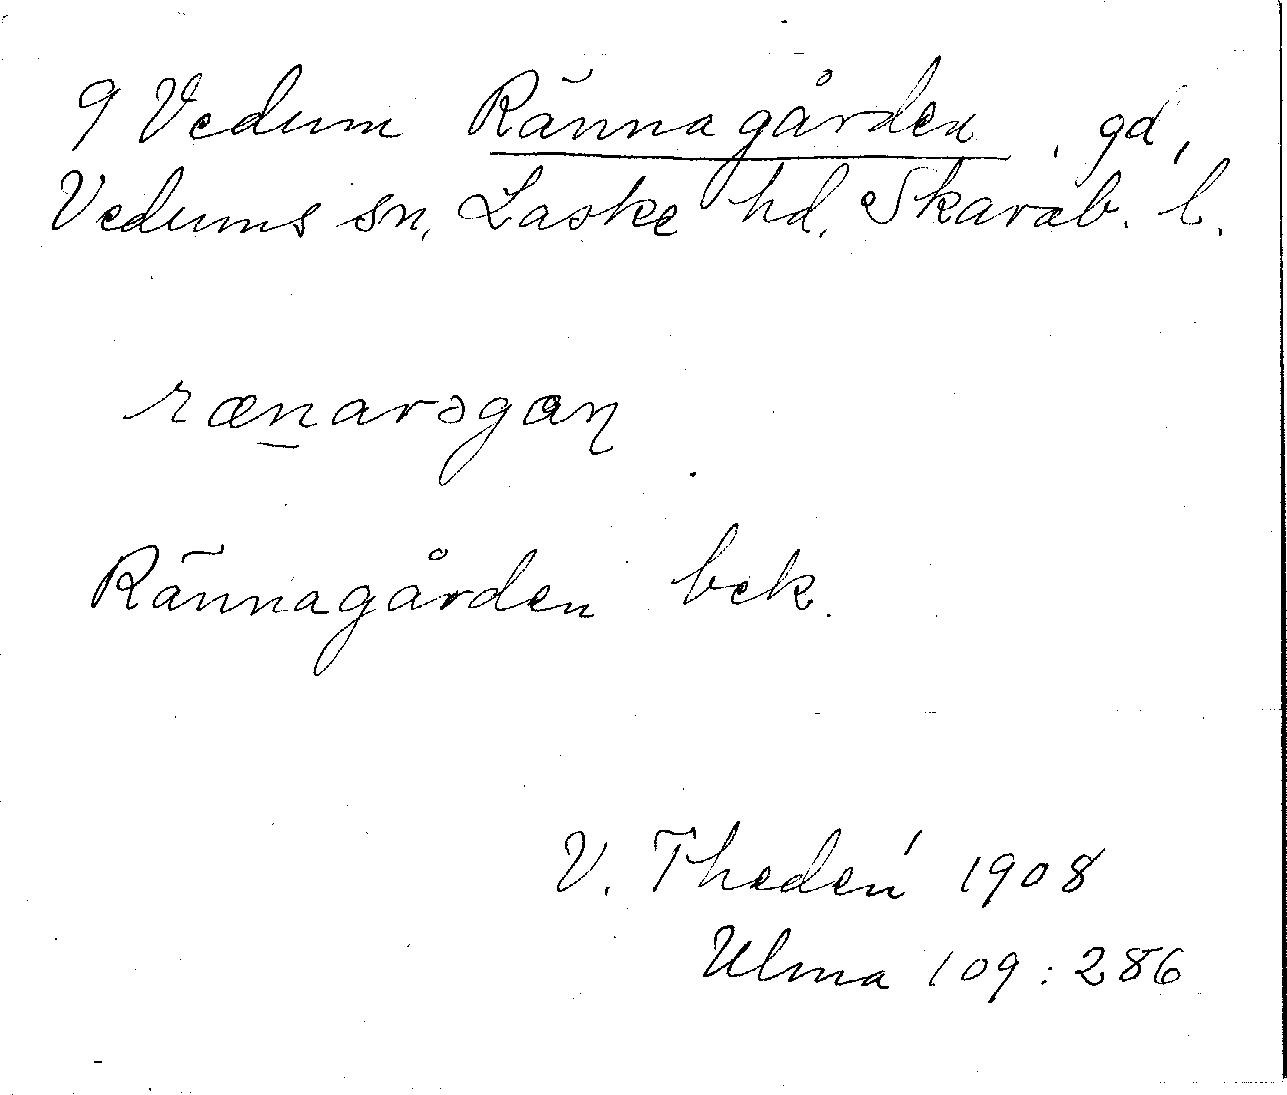 9 Vedum Rännagården, gd,
Vedums sn, Laske hd. Skarab. l.
rænarsgaɳ
Rännagården bek.
V. Thedén 1908
Ulma 109:286